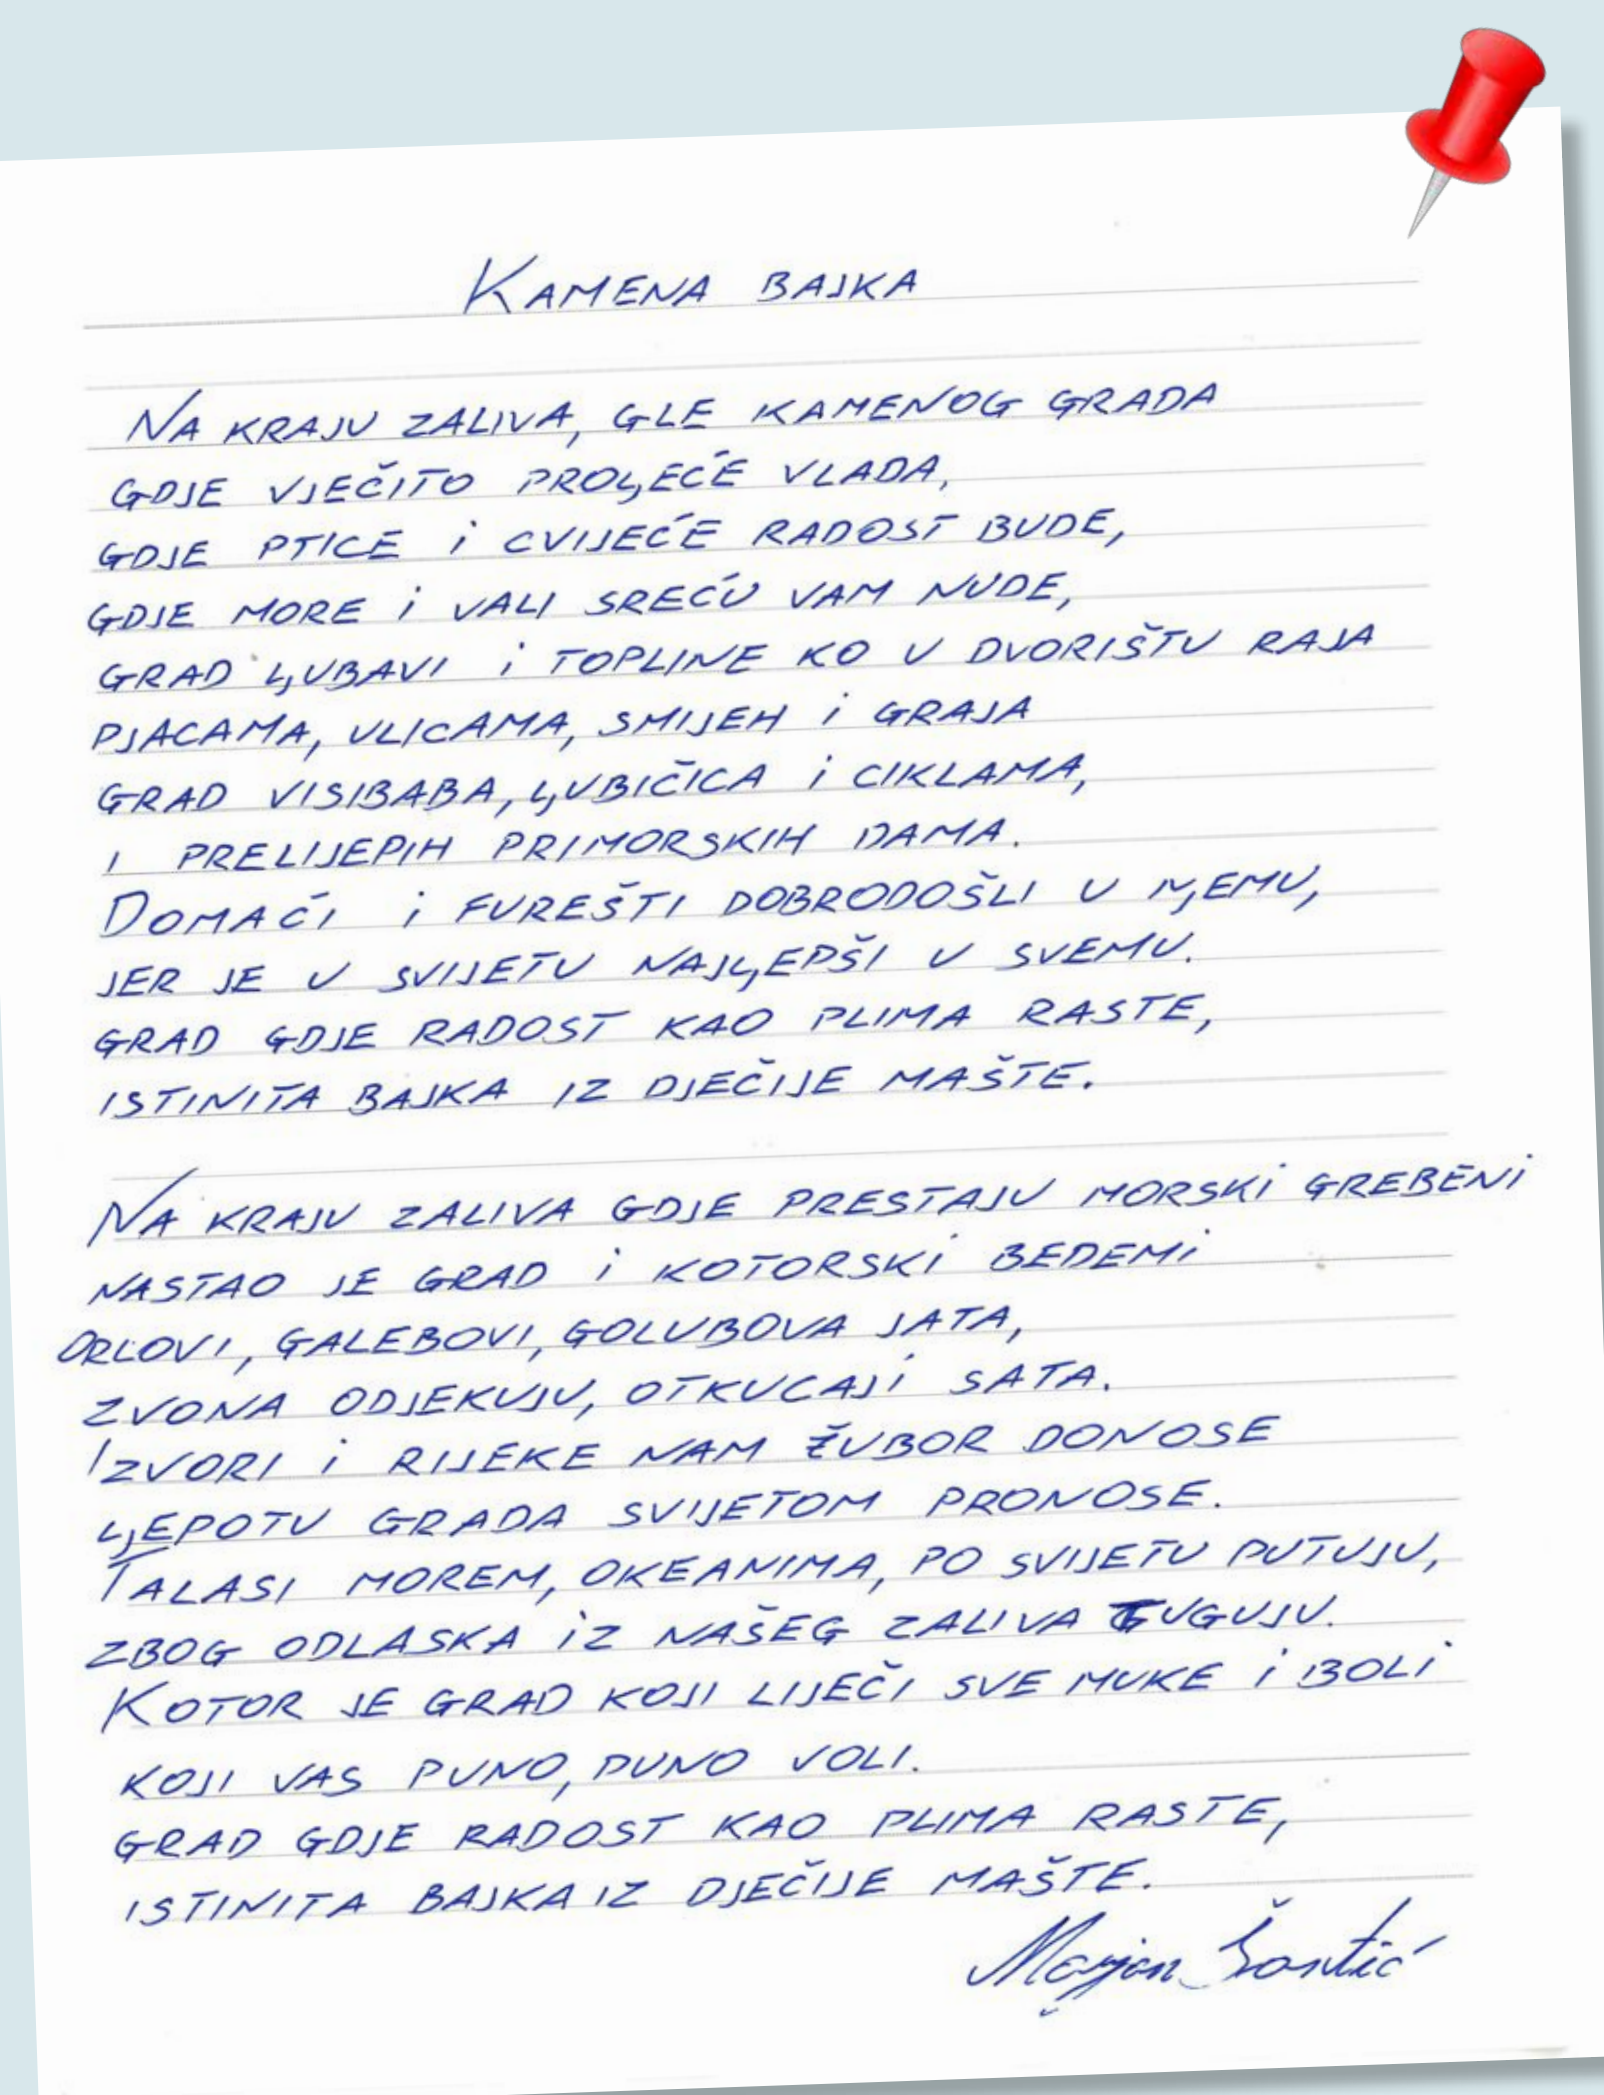 KAMENA BAJKA
NA KRAJU ZALIVA, GLE KAMENOG GRADA
GDJE VJEČITO PROLJEĆE VLADA,
GDJE PTICE i CVIJEĆE RADOST BUDE,
GDJE MORE i VALI SREĆU VAM NUDE,
GRAD LJUBAVI i TOPLINE KO U DVORIŠTU RAJA
PJACAMA, ULICAMA, SMIJEH i GRAJA
GRAD VISIBABA, LJUBIČICA i CIKLAMA,
I PRELIJEPIH PRIMORSKIH DAMA.
DOMAĆI i FUREŠTI DOBRODOŠLI U NJEMU,
JER JE U SVIJETU NAJLJEPŠI U SVEMU.
GRAD GDJE RADOST KAO PLIMA RASTE,
ISTINITA BAJKA IZ DJEČIJE MAŠTE.
NA KRAJU ZALIVA GDJE PRESTAJU MORSKi GREBENi
NASTAO JE GRAD i KOTORSKi BEDEMi
ORLOVI, GALEBOVI, GOLUBOVA JATA,
ZVONA ODJEKUJU, OTKUCAJi SATA.
IZVORI i RIJEKE NAM ŽUBOR DONOSE
LJEPOTU GRADA SVIJETOM PRONOSE.
TALASI MOREM, OKEANIMA, PO SVIJETU PUTUJU,
ZBOG ODLASKA iZ NAŠEG ZALIVA TUGUJU.
KOTOR JE GRAD KOJI LIJEČI SVE MUKE i BOLi
KOJI VAS PUNO, PUNO VOLI.
GRAD GDJE RADOST KAO PLIMA RASTE,
ISTINITA BAJKA IZ DJEČIJE MAŠTE.
Marjan